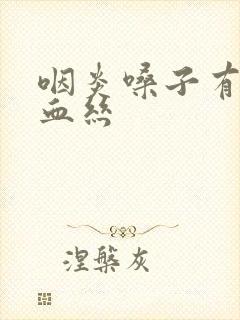 咽炎嗓子有
血丝
涅槃灰